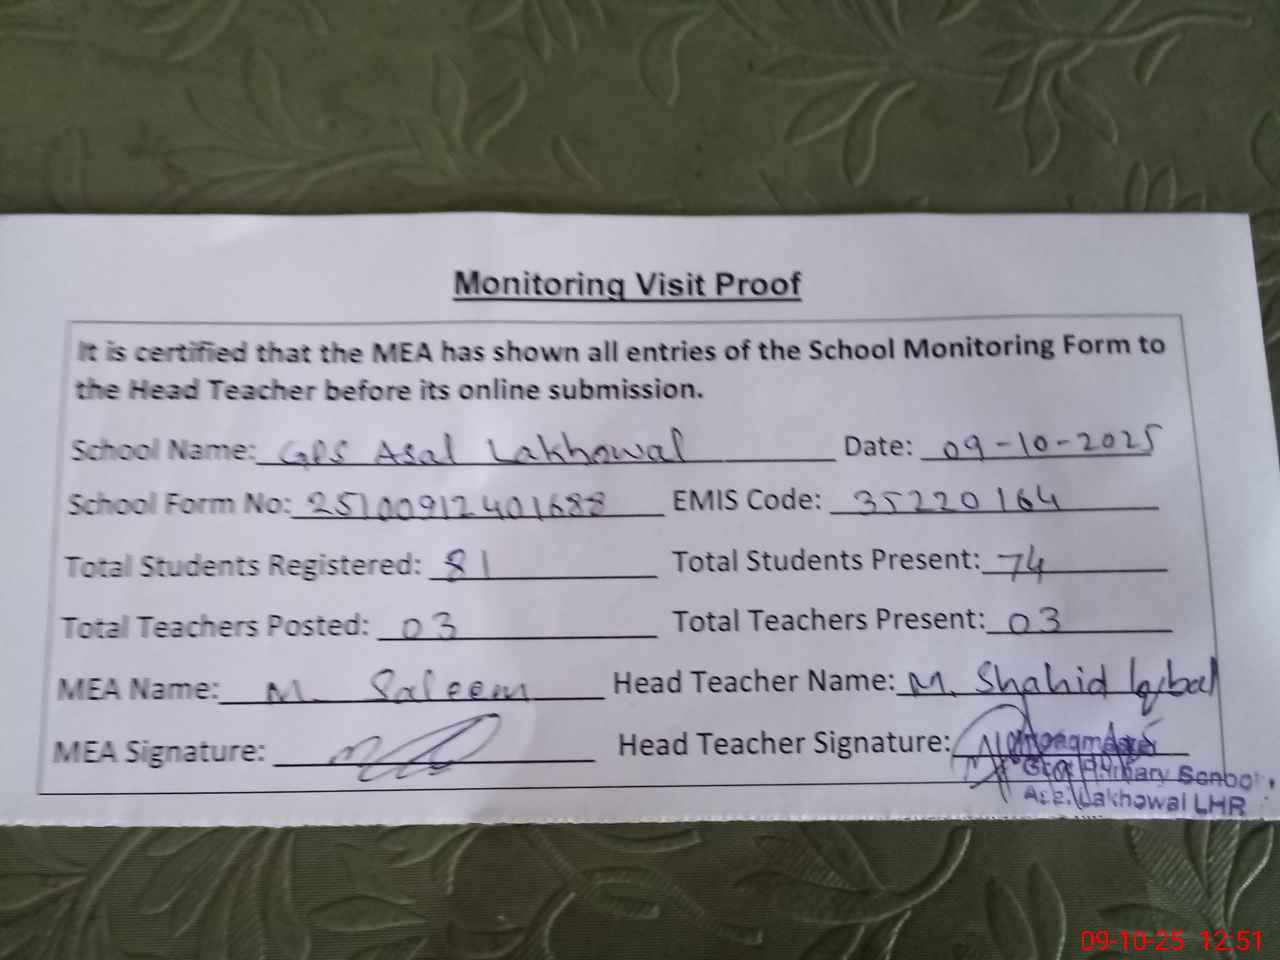 Monitoring Visit Proof
It is certified that the MEA has shown all entries of the School Monitoring Form to
the Head Teacher before its online submission.
School Name: GPS Asal Lakhowal Date: 09-10-2025
School Form No: 25100912401688 EMIS Code: 35220164
Total Students Registered: 81 Total Students Present: 74
Total Teachers Posted: 03 Total Teachers Present: 03
MEA Name: M. Saleem Head Teacher Name: M. Shahid Iqbal
MEA Signature: Head Teacher Signature:
Primary
Lakhowal LHR
09-10-25 12:51